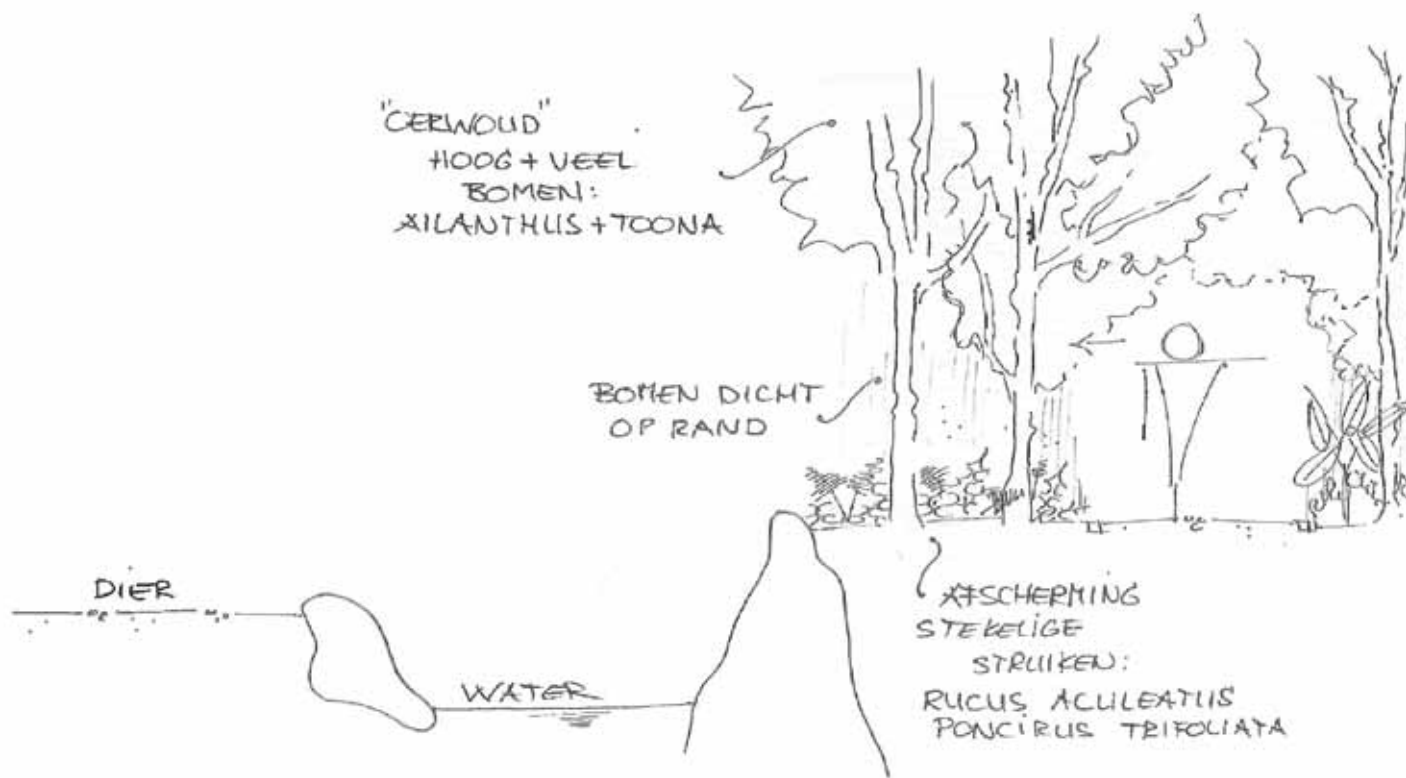 "OERWOUD"
HOOG + VEEL
BOMEN:
AILANTHUS + TOONA
BOMEN DICHT
OP RAND
DIER
WATER
AFSCHERMING
STEKELIGE
STRUIKEN:
RUCUS ACULEATUS
PONCIRUS TRIFOLIATA